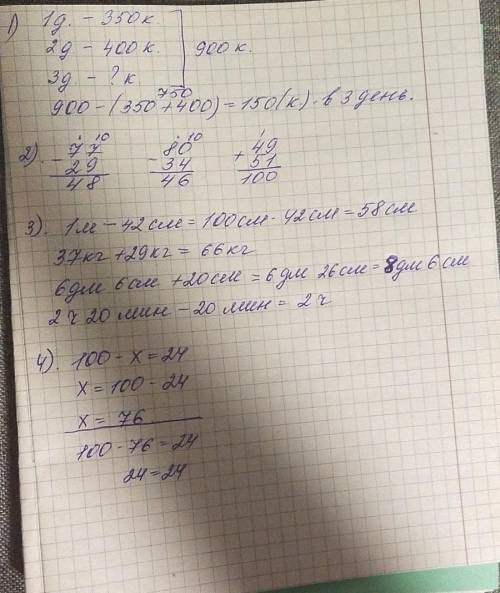 1) 1д. – 350 к.
2д – 400 к. 900 к.
3д – ? к
750
900 – (350 + 400) = 150 (к). в 3 день.
2). 77 80 49
– 29 – 34 + 51
48 46 100
3). 1м – 42см = 100см - 42см = 58см
37кг + 29кг = 66кг
6дм 6см + 20см = 6дм 26см = 8дм 6см
2ч 20 мин – 20 мин = 2ч
4). 100 - х = 24
х = 100 - 24
х = 76
100 - 76 = 24
24 = 24